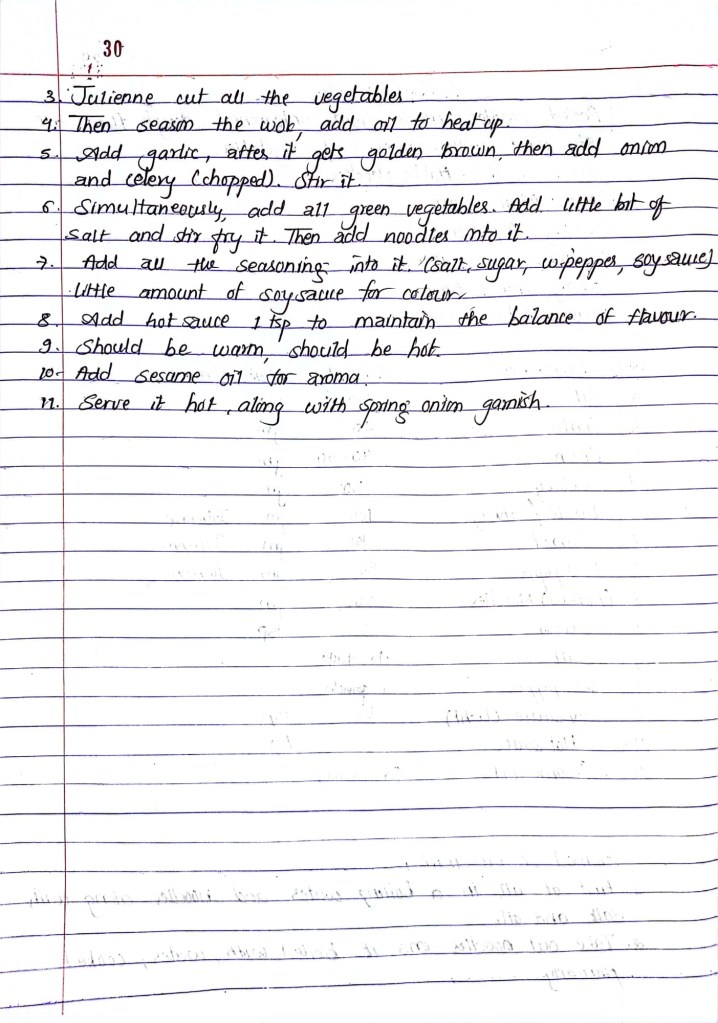 30
3. Julienne cut all the vegetables.
4. Then season the wob, add oil to heat up.
5. Add garlic, after it gets golden brown, then add onion
and celery (chopped). Stir it.
6. Simultaneously, add all green vegetables. Add little bit of
salt and stir fry it. Then add noodles into it.
7. Add all the seasoning into it. (salt, sugar, w.pepper, soy sauce)
little amount of soy sauce for colour.
8. Add hot sauce 1 tsp to maintain the balance of flavour.
9. Should be warm, should be hot.
10. Add sesame oil for aroma.
11. Serve it hot, along with spring onion garnish.